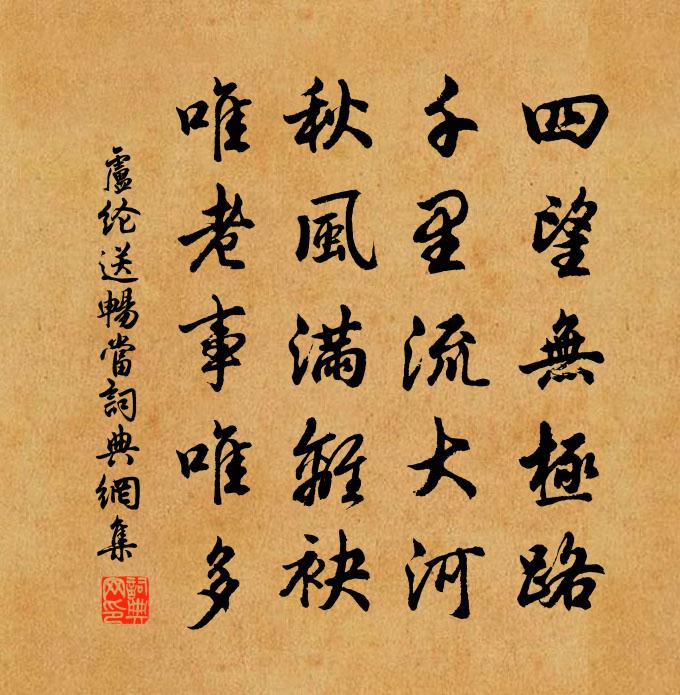 四望無極路
千里流大河
秋風滿離袂
唯老事唯多
盧綸送暢當詞典網集
詞典網印